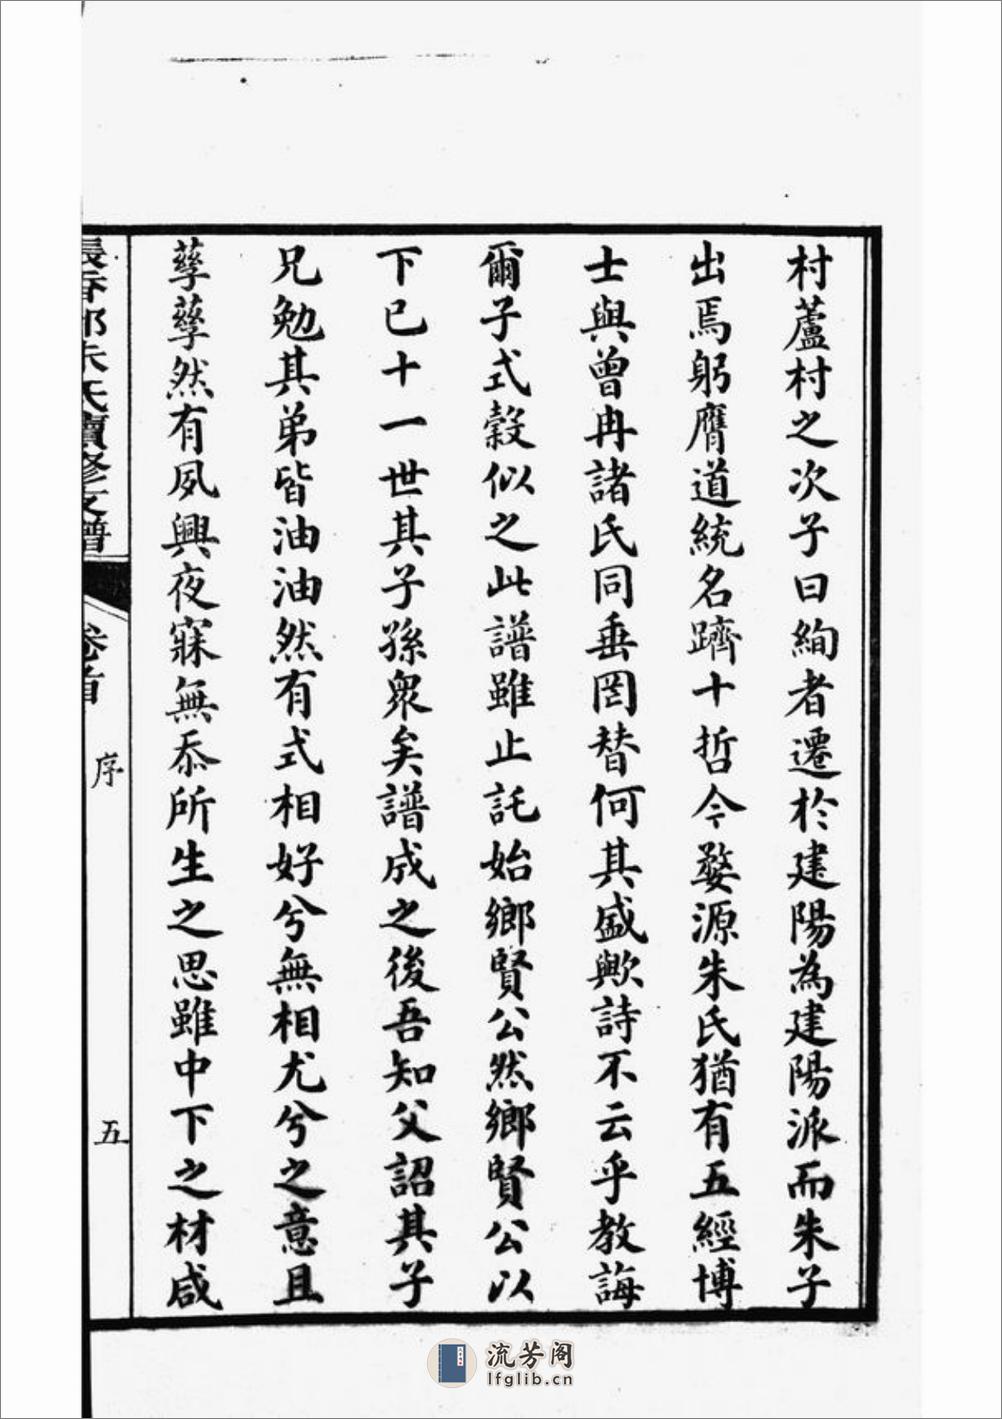 村蘆村之次子曰絢者遷於建陽為建陽派而朱子
出焉躬膺道統名躋十哲今婺源朱氏猶有五經博
士與曾冉諸氏同垂罔替何其盛歟詩不云乎教誨
爾子式榖似之此譜雖止託始鄉賢公然鄉賢公以
下已十一世其子孫衆矣譜成之後吾知父詔其子
兄勉其弟皆油油然有式相好兮無相尤兮之意且
孳孳然有夙興夜寐無忝所生之思雖中下之材咸
朱氏續修支譜
卷首
序
五
流芳阁
lfglib.cn